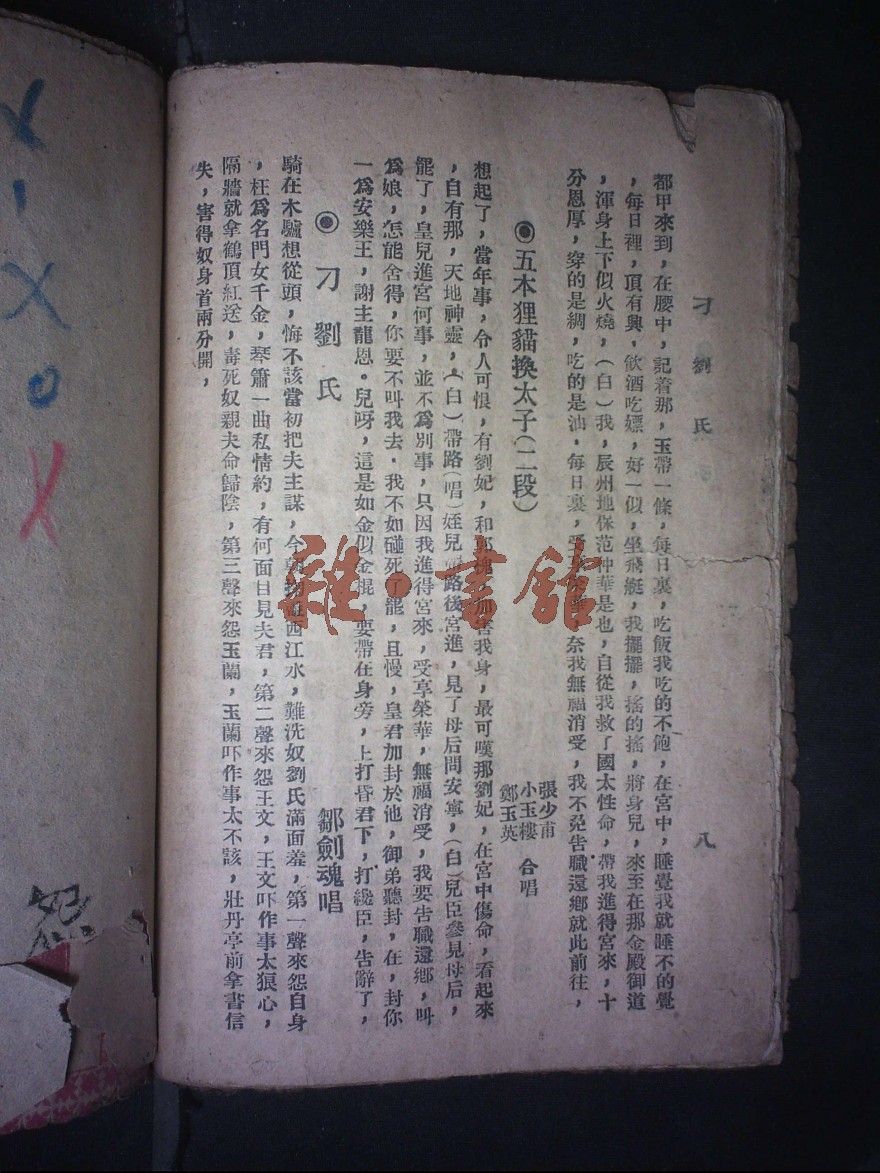 刁劉氏
八
都甲來到，在腰中，記着那，玉帶一條，每日裏，吃飯我吃的不飽，在宮中，睡覺我就睡不的覺
，每日裡，頂有興，飲酒吃嫖，好一似，坐飛艇，我擺擺，搖的搖，將身兒，來至在那金殿御道
，渾身上下似火燒，（白）我，辰州地保范仲華是也，自從我救了國太性命，帶我進得宮來，十
分恩厚，穿的是綢，吃的是油．每日裏，受享榮華，奈我無福消受，我不免告職還鄉就此前往，
◉五本狸貓換太子（二段）
張少甫
小玉樓
鄭玉英
合唱
想起了，當年事，令人可恨，有劉妃，和郭槐，加害我身，最可嘆那劉妃，在宮中傷命，看起來
，自有那，天地神靈，（白）帶路（唱）姪兒路後宮進，見了母后問安寧，（白）兒臣參見母后，
罷了，皇兒進宮何事，並不為別事，只因我進得宮來，受享榮華，無福消受，我要告職還鄉，叫
為娘，怎能舍得，你要不叫我去．我不如碰死了罷，且慢，皇君加封於他，御弟聽封，在，封你
一為安樂王，謝主龍恩．兒呀，這是如金似金棍，要帶在身旁，上打昏君下，打纔臣，告辭了，
◉刁劉氏
鄒劍魂唱
騎在木驢想從頭，悔不該當初把夫主謀，今西江水，難洗奴劉氏滿面羞，第一聲來怨自身
，枉為名門女千金，琴簫一曲私情約，有何面目見夫君，第二聲來怨王文，王文吓作事太狠心，
隔牆就拿鶴頂紅送，毒死奴親夫命歸陰，第三聲來怨玉蘭，玉蘭吓作事太不該，壯丹亭前拿書信
失，害得奴身首兩分開，
雅·書館
怨